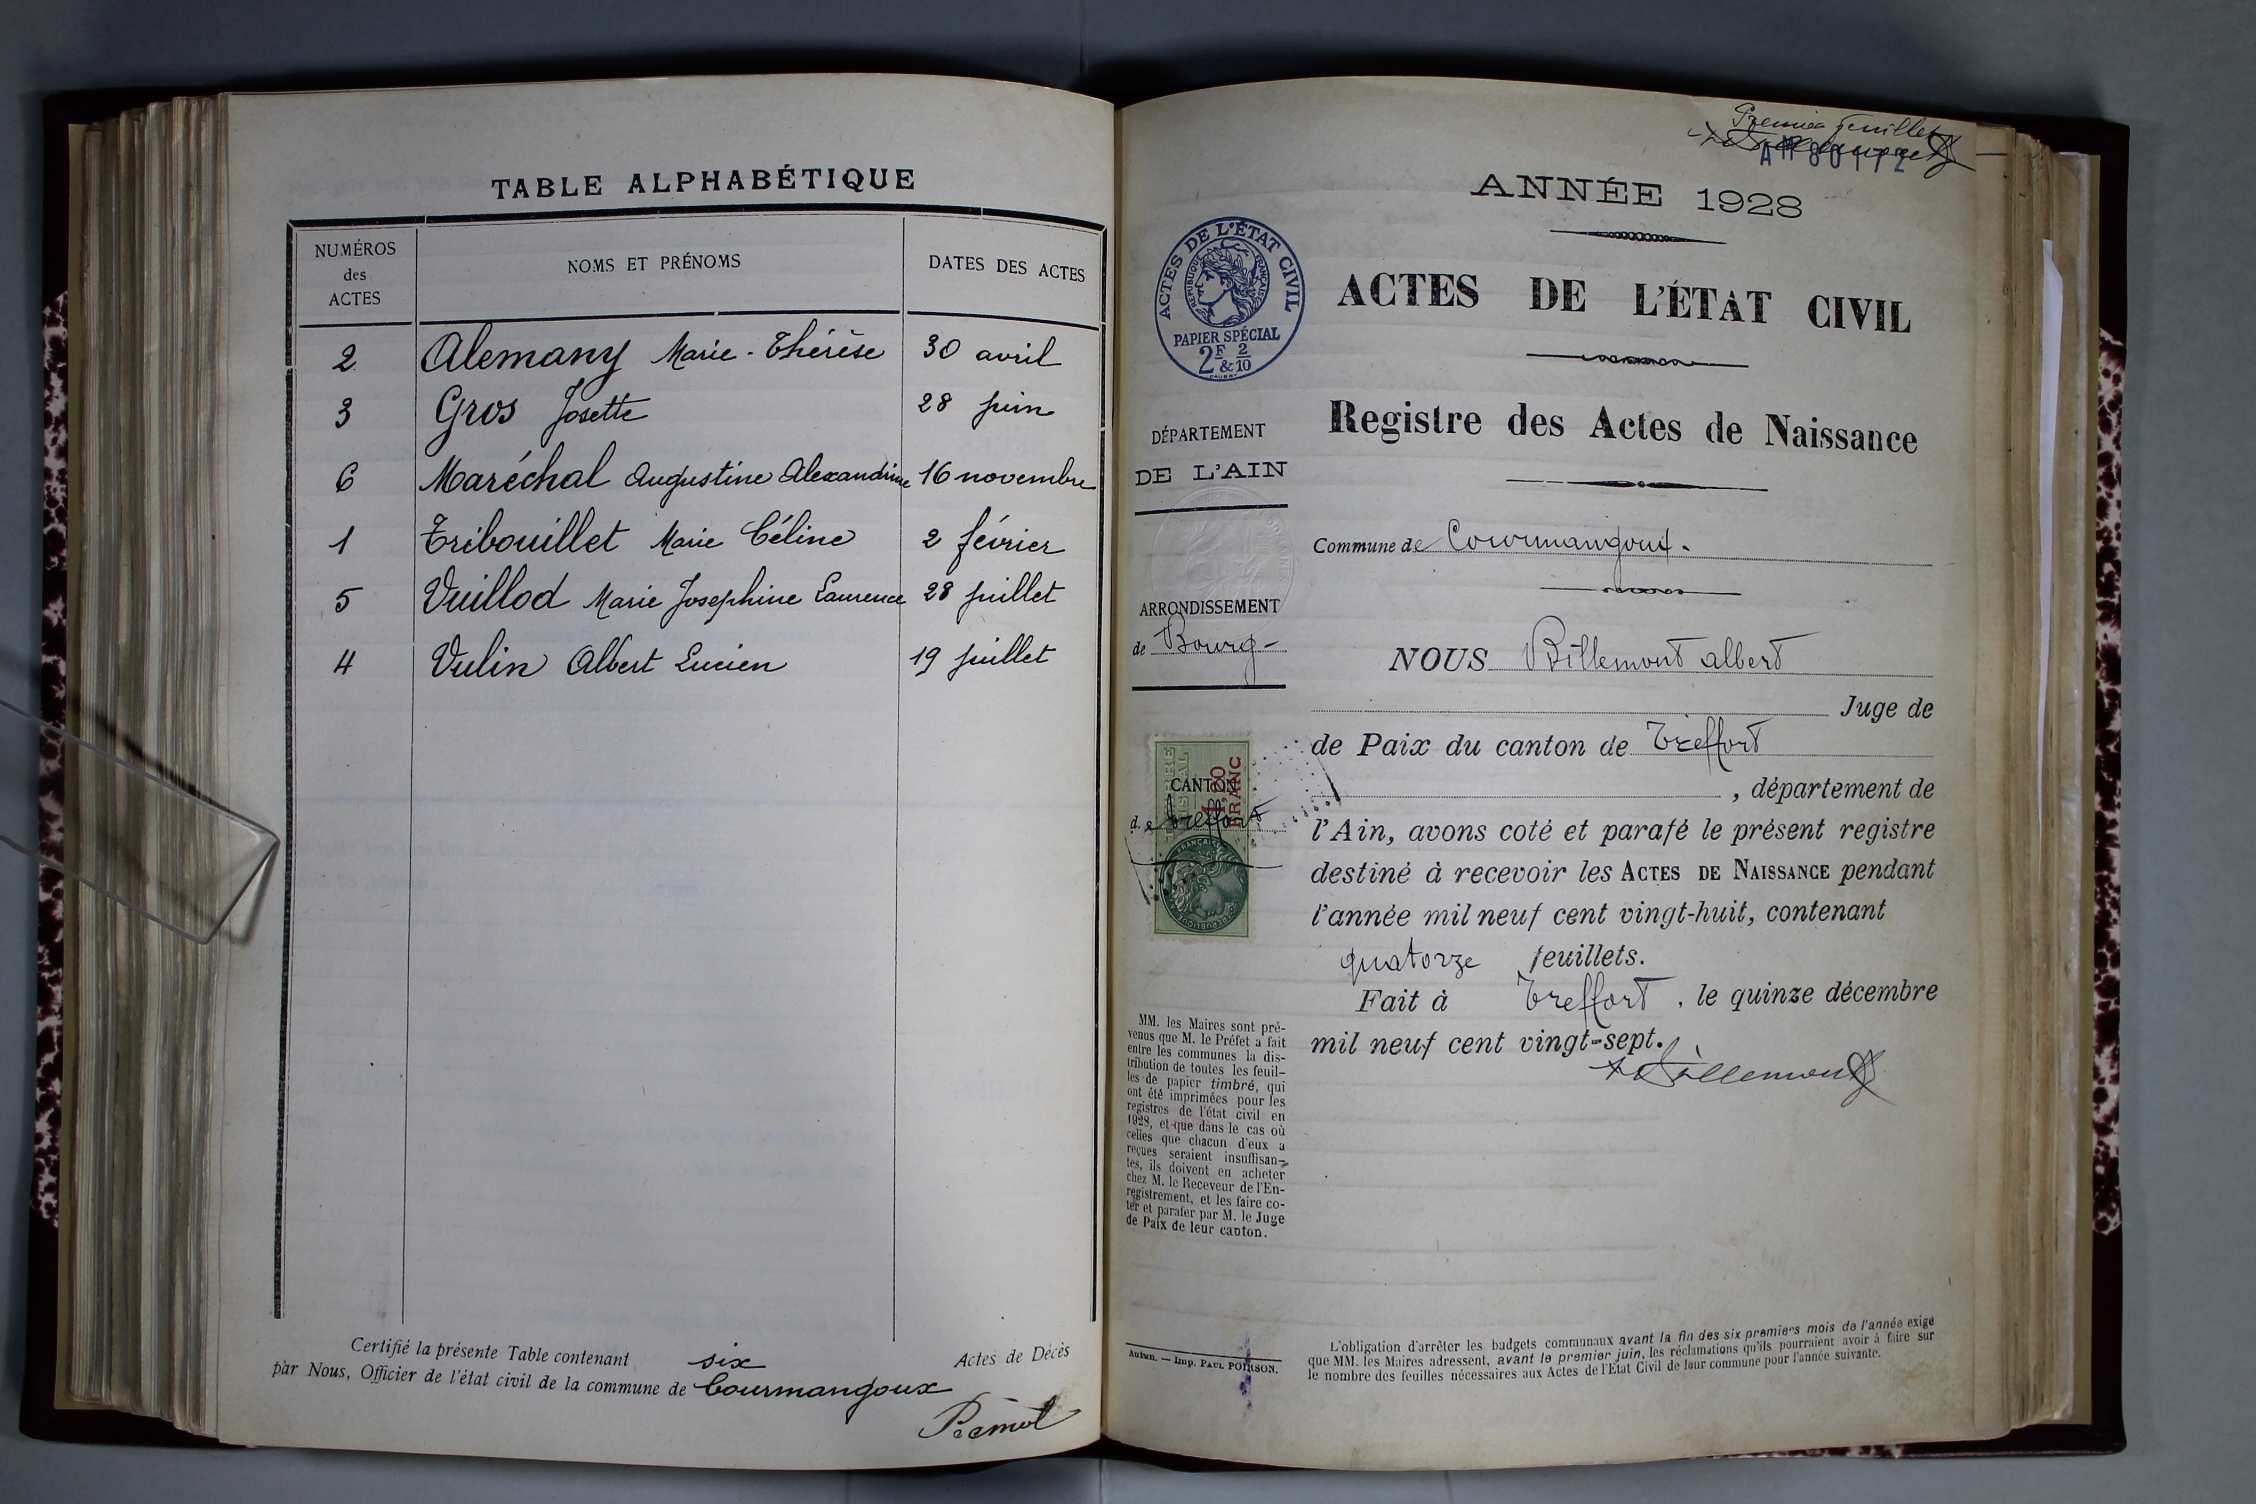 TABLE ALPHABÉTIQUE
NUMÉROS
des
ACTES
NOMS ET PRÉNOMS
DATES DES ACTES
2 Alemany Marie-Thérèse 30 avril
3 Gros Josette 28 juin
6 Maréchal Augustine Alexandrine 16 novembre
1 Tribouillet Marie Céline 2 février
5 Vuillod Marie Josephine Laurence 28 juillet
4 Vulin Albert Lucien 19 juillet
Certifié la présente Table contenant six Actes de Décès
par Nous, Officier de l'état civil de la commune de Courmangoux
Premier feuillet
80172
ANNÉE 1928
ACTES DE L'ÉTAT CIVIL
RÉPUBLIQUE FRANÇAISE
PAPIER SPÉCIAL
2F & 2/10
ACTES DE L'ÉTAT CIVIL
Registre des Actes de Naissance
DÉPARTEMENT
DE L'AIN
Commune de Courmangoux.
ARRONDISSEMENT
de Bourg-
NOUS Billemont albert
Juge de
de Paix du canton de Treffort
, département de
CANTON
d.e Treffort
FRANC
l'Ain, avons coté et parafé le présent registre
destiné à recevoir les ACTES DE NAISSANCE pendant
l'année mil neuf cent vingt-huit, contenant
quatorze feuillets.
Fait à Treffort, le quinze décembre
mil neuf cent vingt-sept.
Billemont
MM. les Maires sont pré-
venus que M. le Préfet a fait
entre les communes la dis-
tribution de toutes les feuil-
les de papier timbré, qui
ont été imprimées pour les
registres de l'état civil en
1928, et que dans le cas où
celles que chacun d'eux a
reçues seraient insuffisan-
tes, ils doivent en acheter
chez M. le Receveur de l'En-
registrement, et les faire co-
ter et parafer par M. le Juge
de Paix de leur canton.
Autun. — Imp. PAUL POIRSON.
L'obligation d'arrêter les budgets communaux avant la fin des six premiers mois de l'année exige
que MM. les Maires adressent, avant le premier juin, les réclamations qu'ils pourraient avoir à faire sur
le nombre des feuilles nécessaires aux Actes de l'Etat Civil de leur commune pour l'année suivante.